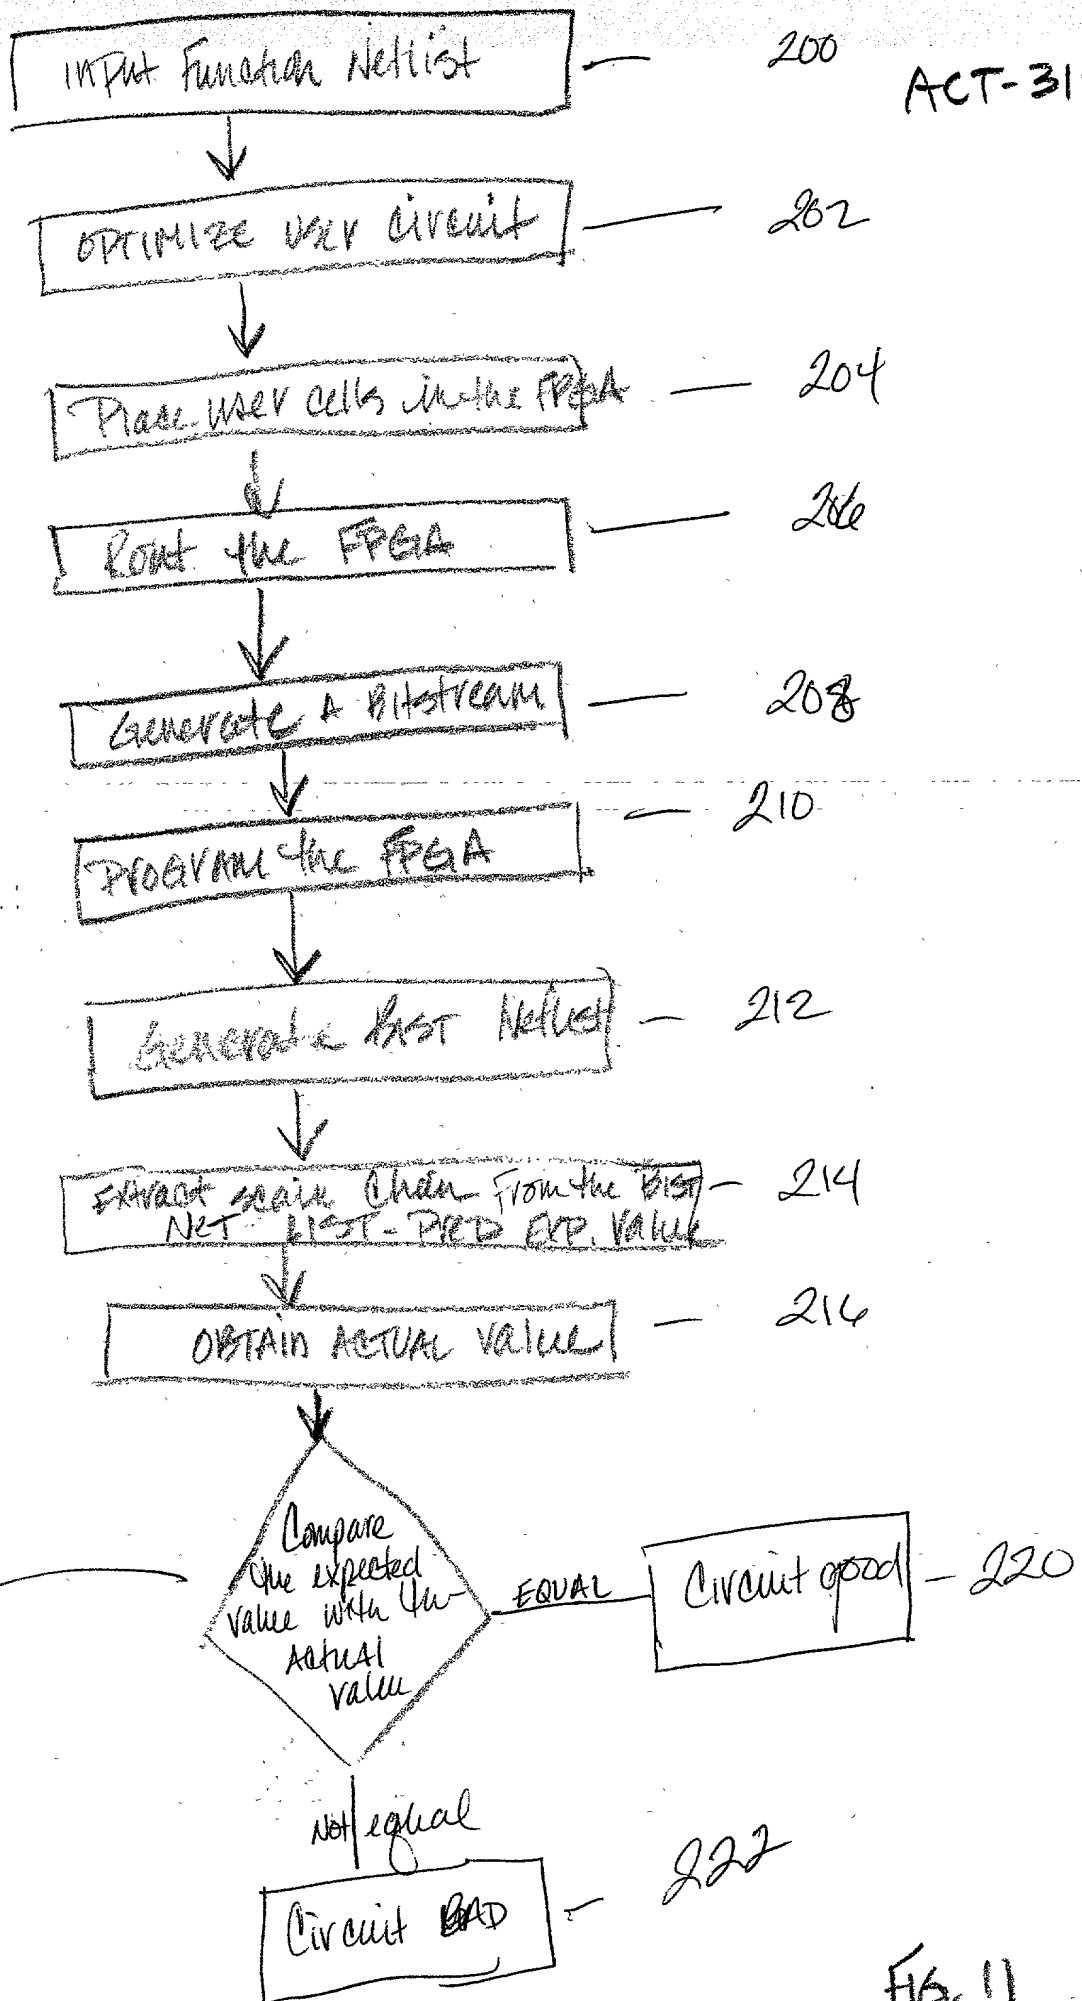 Input Function Netlist
200
ACT-31
OPTIMIZE user circuit
202
Place user cells in the FPGA
204
Rout the FPGA
206
Generate A Bitstream
208
PROGRAM the FPGA
210
Generate BIST Netlist
212
Extract scain Chain From the BIST
NET LIST - PRED EXP. Value
214
OBTAIN ACTUAL Value
216
Compare
the expected
value with the
Actual
value
EQUAL
Circuit good
220
Not equal
Circuit BAD
222
FIG. 11